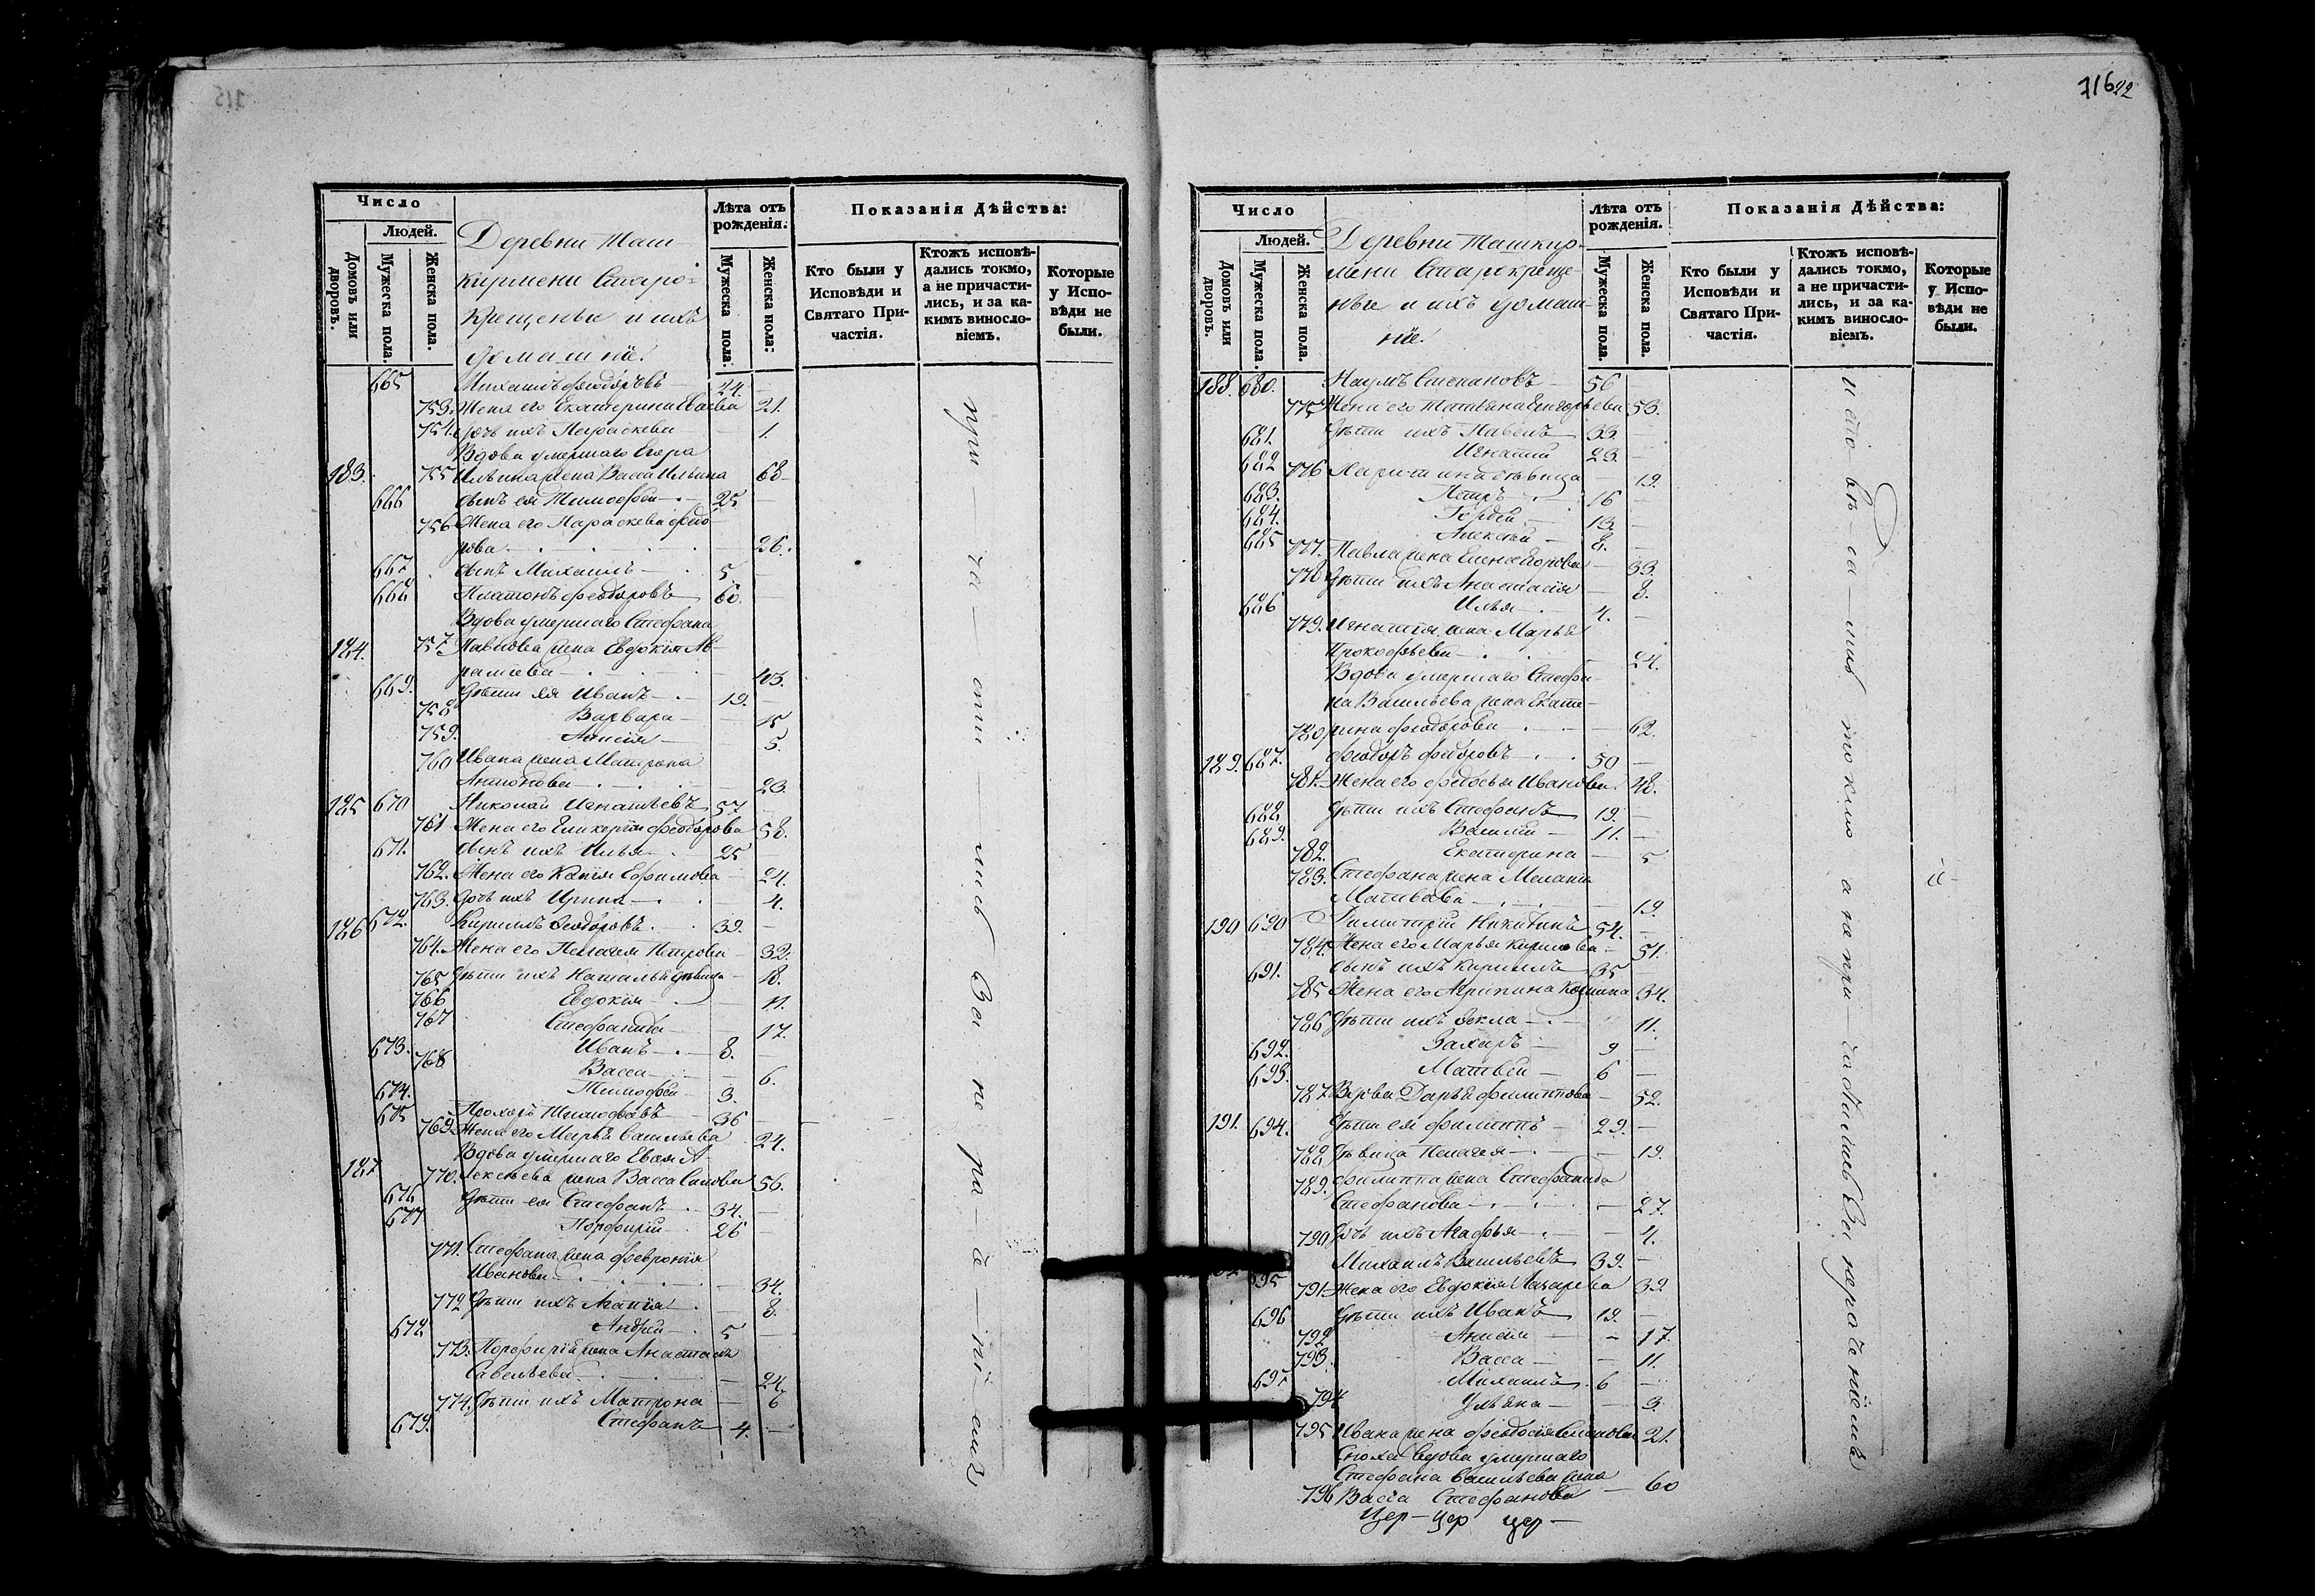 716 22
Число
Людей.
Домовъ или дворовъ.
Мужеска пола.
Женска пола.
Деревни Таш-
кирмени Старо-
крещеные и ихъ
домашнїе.
Лѣта отъ рожденія.
Мужеска пола.
Женска пола.
Показанія Дѣйства:
Кто были у Исповѣди и Святаго Причастія.
Ктожъ исповѣ-
дались токмо,
а не причасти-
лись, и за ка-
кимъ винословіемъ.
Которые у Исповѣди не были.
665 Михаилъ Феодоровъ 24. —
753. Жена его Екатерина 21.
754. дочь ихъ Параскева — 1.
Вдова умершаго Егора
183. 755 Ильина жена Васса Ильина 68
666 сынъ ея Тимофей 25 —
756 Жена его Параскева Федо-
рова 26.
667 сынъ Михаилъ 5 —
668 Платонъ Феодоровъ 60. —
Вдова умершаго Стефана
184. 757 Павлова жена Евдокія Ав-
рамиева 43.
669. Дѣти ея Иванъ 19. —
758 Варвара — 15
759. Анисія — 5.
760 Ивана жена Матрона
Антонова 23
185 670 Николай Игнатьевъ 57. —
761 Жена его Феодорова 58.
671. сынъ ихъ Илья 25
762. Жена его Ефимова 24.
763. Дочь ихъ Ирина 4.
186 672. Кириллъ Феодоровъ 39. —
764. Жена его Пелагея Петрова 32.
765 Дѣти ихъ Наталья дѣвица 18.
766 Евдокія 11.
767 Стефанида 17.
673. Иванъ 8. —
768 Васса 6.
674. Тимофей 3.
675 Прохоръ Тимофеевъ 36 —
769. Жена его Марья Васильева 24.
Вдова умершаго А-
187 770. лексѣева жена Васса 56.
676 Дѣти ея Стефанъ 34. —
677 Порфирій 26 —
771. Стефана жена Феврония
Иванова 34.
772 Дѣти ихъ Агапія 8.
678 Андрей 5 —
773. Порфирія жена Анастасія
Савельева 24.
774. Дѣти ихъ Матрона — 6
679. Стефанъ 4. —
Число
Людей.
Домовъ или дворовъ.
Мужеска пола.
Женска пола.
Деревни Ташкир-
мени Старокреще-
ные и ихъ домаш-
нїе.
Лѣта отъ рожденія.
Мужеска пола.
Женска пола.
Показанія Дѣйства:
Кто были у Исповѣди и Святаго Причастія.
Ктожъ исповѣ-
дались токмо,
а не причасти-
лись, и за ка-
кимъ винословіемъ.
Которые у Исповѣди не были.
188. 680. Наумъ Степановъ 56
775 Жена его Татьяна Григорьева 53.
681. Дѣти ихъ Павелъ 33. —
682 Игнатій 23. —
776 дѣвица — 19.
683. Петръ 16 —
684. Гордей 13. —
685 Алексѣй 8. —
777. Павла жена Елена Егорова 33.
778 Дѣти ихъ Анастасія 8.
686 Илья 4. —
779. Игнатія жена Марья
Прокофьева 24.
Вдова умершаго Стефа-
на Васильева жена Екате-
780 рина Феодорова 62.
189. 687. Феодоръ Феодоровъ 50 —
781. Жена его Федосья Иванова 48.
688 Дѣти ихъ Стефанъ 19. —
689. Василій 11. —
782. Екатерина 5
783. Стефана жена
Матвеева 19.
190 690 Димитрій Никитинъ 54. —
784. Жена его Марья Кирилова 51.
691. сынъ ихъ Кириллъ 35 —
785 Жена его Агрипина 34.
786 Дѣти ихъ Фекла 11.
692. Захаръ 9 —
693. Матвей 6 —
787. Вдова Дарья Филиппова 52.
191. 694. Дѣти ея Филиппъ 29. —
788 Дѣвица Пелагея 19.
789. Филиппа жена Стефанида
Стефанова 27.
790 Дочь ихъ Агафья 4.
695 Михаилъ Васильевъ 39. —
791 Жена его Евдокія Лазарева 39
696 Дѣти ихъ Иванъ 19. —
792 Анисія — 17.
793. Васса — 11.
697 Михаилъ 6 —
794 Ульяна — 3.
795 Ивана жена Феодосія 21.
Сноха вдова умершаго
Стефана Васильева жена
796 Васса Стефанова — 60
Цер — цер цер —